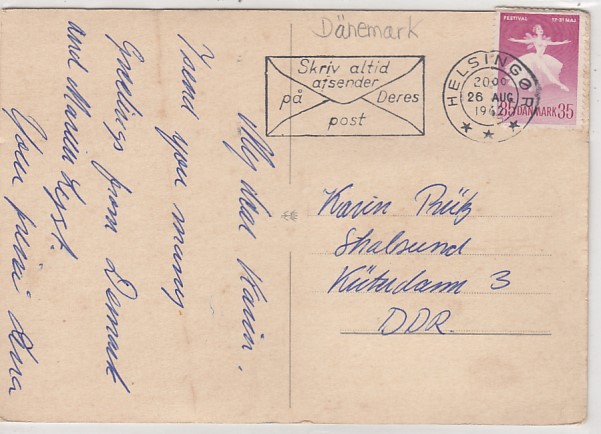 Dänemark
FESTIVAL 17-31 MAJ
DANMARK 35
HELSINGØR
2000
26 AUG
1962
Skriv altid
afsender
på Deres
post
My dear Karin.
I send you many
Greetings from Denmark
and Maria
Your
Karin Prütz
Stralsund
Küterdamm 3
DDR.